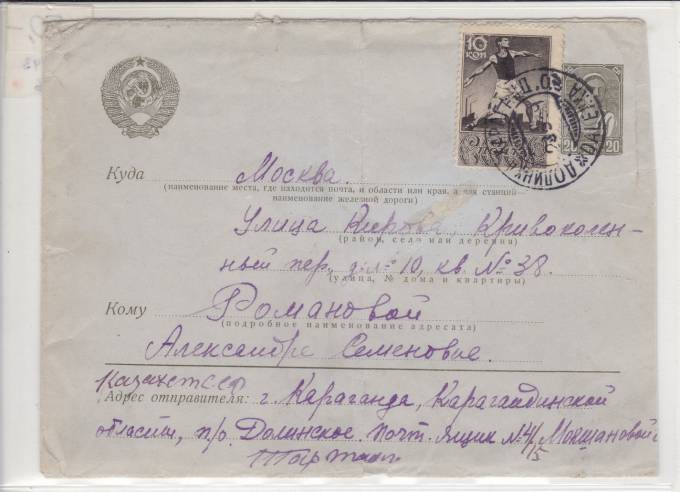 10
КОП
20
20
Куда Москва.
(наименование места, где находится почта, и области или края, а для станций
наименование железной дороги)
Улица Кирова, Кривоколен-
(район, село или деревня)
ный пер, д. № 10, кв. № 38.
(улица, № дома и квартиры)
Кому Романовой
(подробное наименование адресата)
Александре Семеновне.
Казахст ССР
Адрес отправителя: г. Караганда, Карагандинской
области, п/о Долинское. Почт. Ящик №4/5 Мокшановой